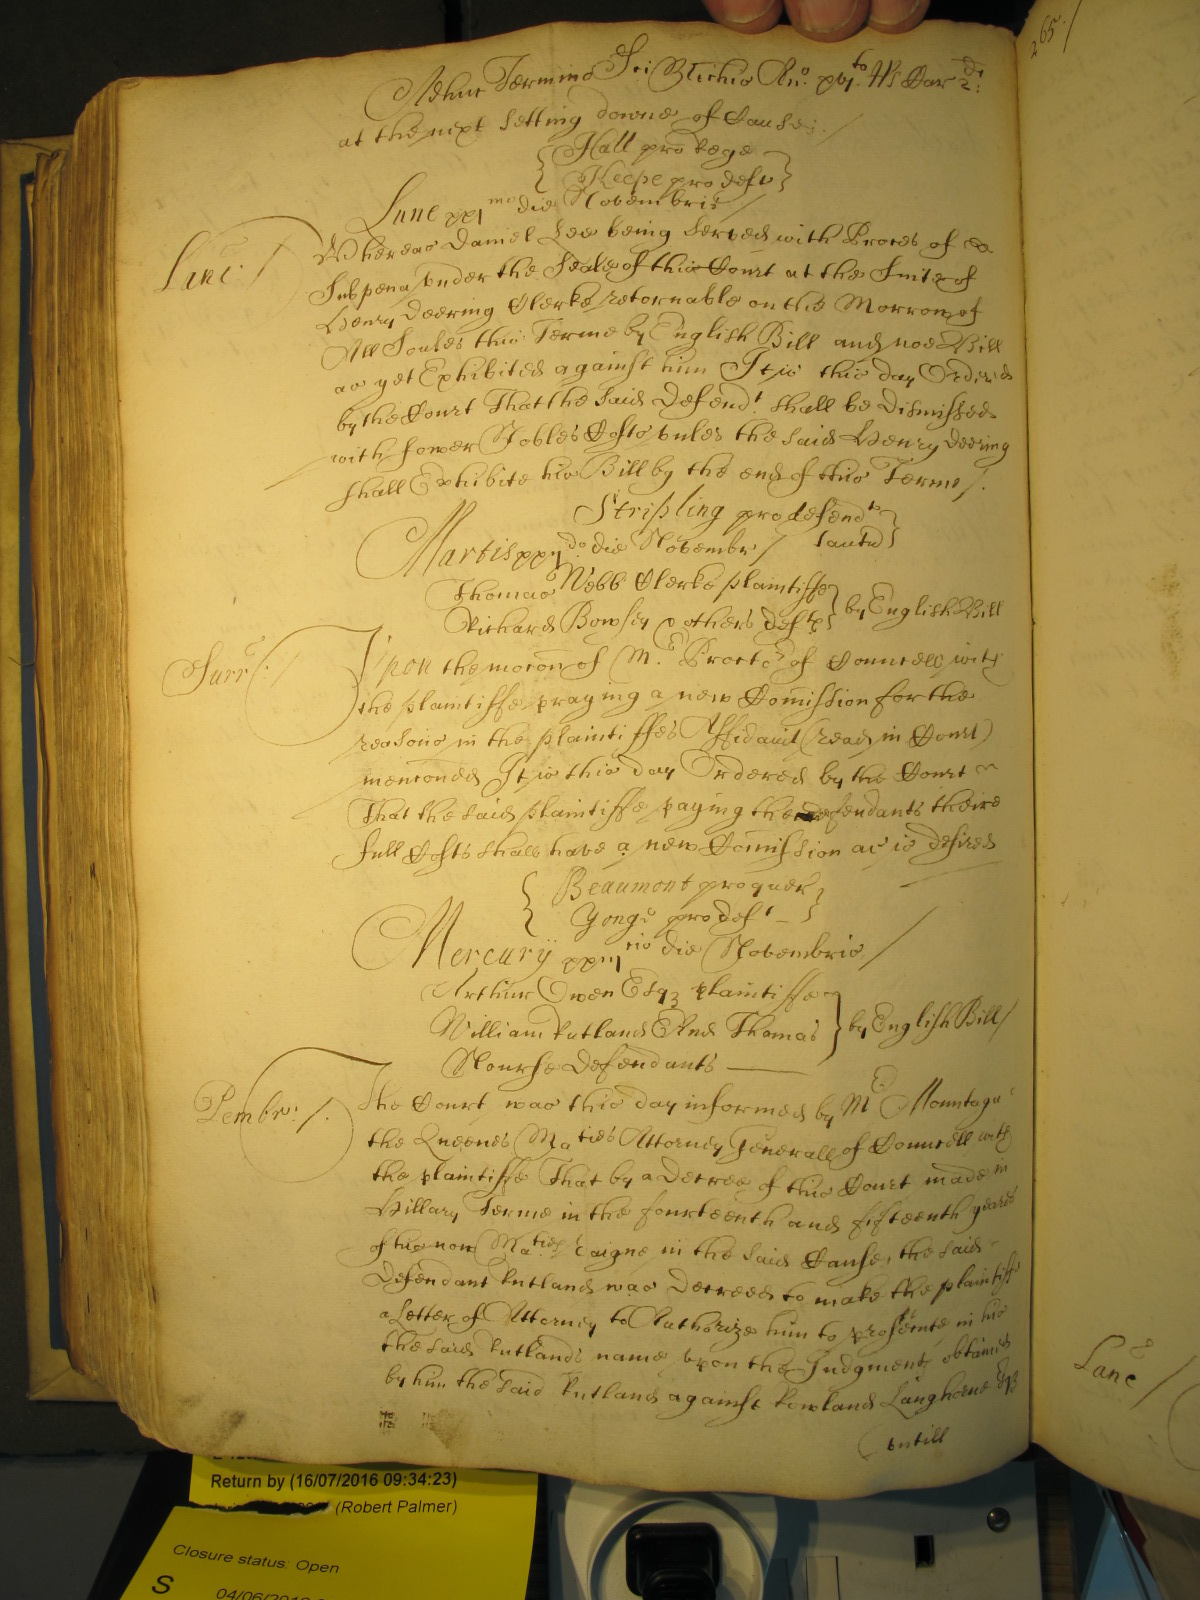 Adhuc Termino Sci Michis Ano. xvjto. RRs Car 2di:
at the next setting downe of Causes./
Hall pro Rege
Keepe pro defto
Lune xxjmo die Novembris /
Lanc: / Whereas Daniel Lee being served with Proces of
Subpena under the Seale of this Court at the Suite of
Henry Deering Clerke retornable on the Morrow of
All Soules this Terme by English Bill and noe Bill
as yet Exhibited against him It is this day Ordered
by the Court That the said Defendt. shall be dismissed
with fower Nobles Costs unles the said Henry Deering
shall Exhibite his Bill by the end of this Terme /.
Stripling pro defendte
Martis xxijdo die Novembr /
Thomas Webb Clerke plaintiffe
Richard Bowsey & others defts
by English Bill
Surr: /
Upon the mocon of Mr. Procter of Councell with
the plaintiffe praying a new Comission for the
reasons in the plaintiffes Affidavit (read in Court)
menconed It is this day Ordered by the Court
That the said plaintiffe paying the defendants theire
full Costs shall have a new Comission as is desired
Beaumont pro quer
Yonge pro deft
Mercurij xxiijtio die Novembris /
Arthur Owen Esqz plaintiffe
William Rutland And Thomas
Nourse Defendants
by English Bill /
Pembr: /.
The Court was this day informed by Mr Mountagu
the Queenes Maties Attorney Generall of Councell with
the plaintiffe That by a Decree of this Court made in
Hillary Terme in the fourteenth and fifteenth yeares
of his now Maties Raigne in the said Cause, the said
Defendant Rutland was decreed to make the plaintiff
a Letter of Attorney to Authorize him to prosecute in his
the said Rutlands name upon the Judgment obtained
by him the said Rutland against Rowland Laugharne Esqz
untill
265. /
Lanc /
Return by (16/07/2016 09:34:23)
(Robert Palmer)
Closure status: Open
S